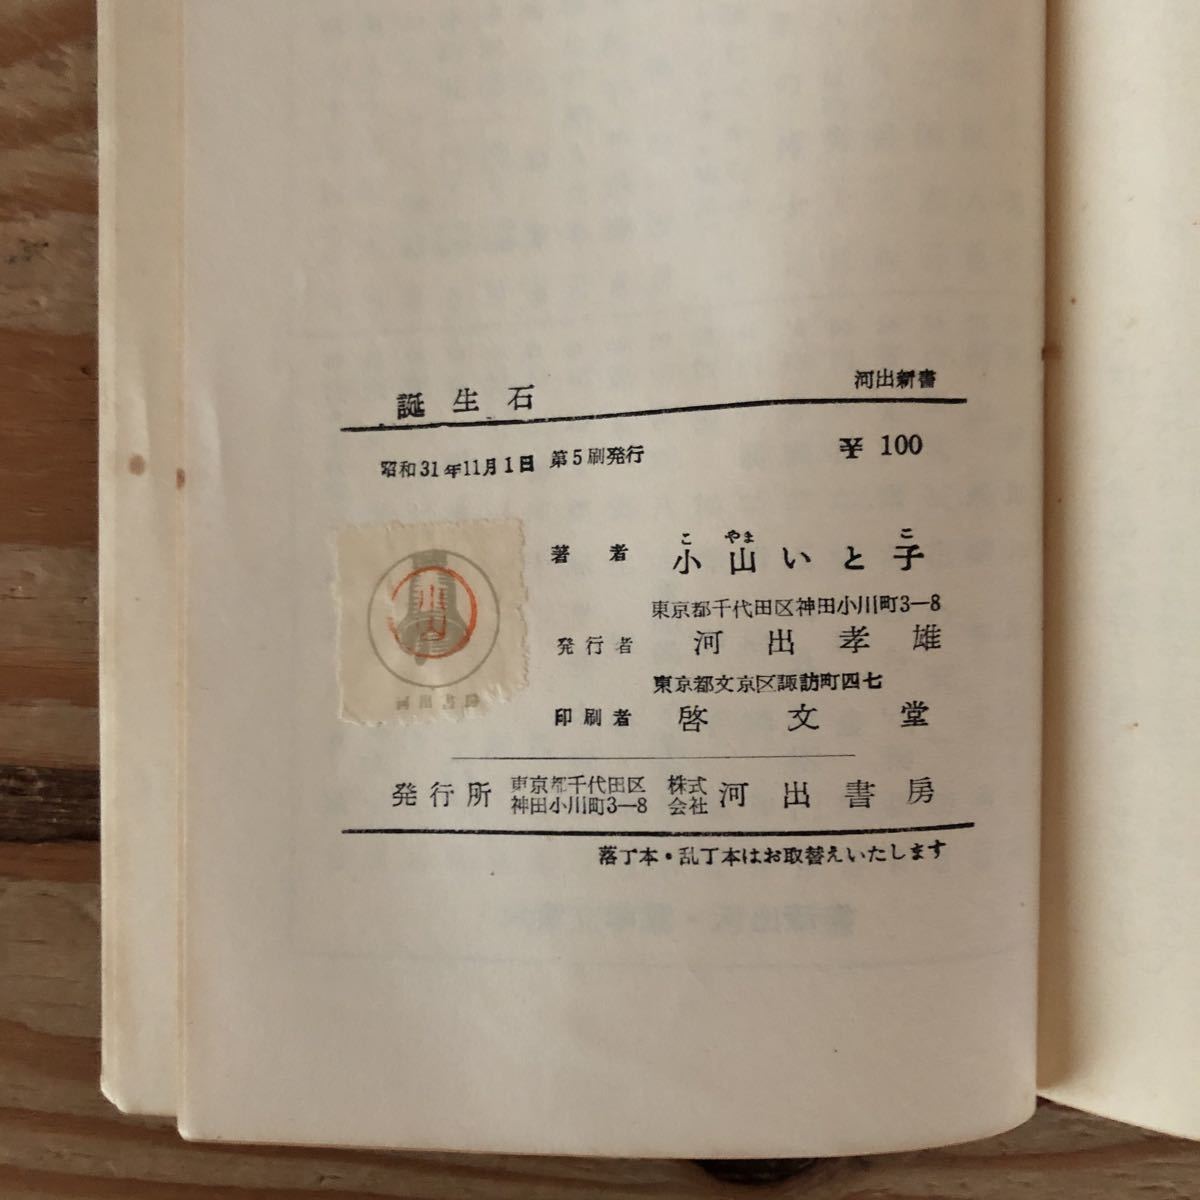 誕生石 河出新書
昭和31年11月1日 第5刷発行 ¥100
こ やま こ
著者 小山いと子
東京都千代田区神田小川町3—8
発行者 河出孝雄
東京都文京区諏訪町四七
印刷者 啓文堂
発行所 東京都千代田区 株式 河出書房
神田小川町3—8 会社
落丁本・乱丁本はお取替えいたします
小山